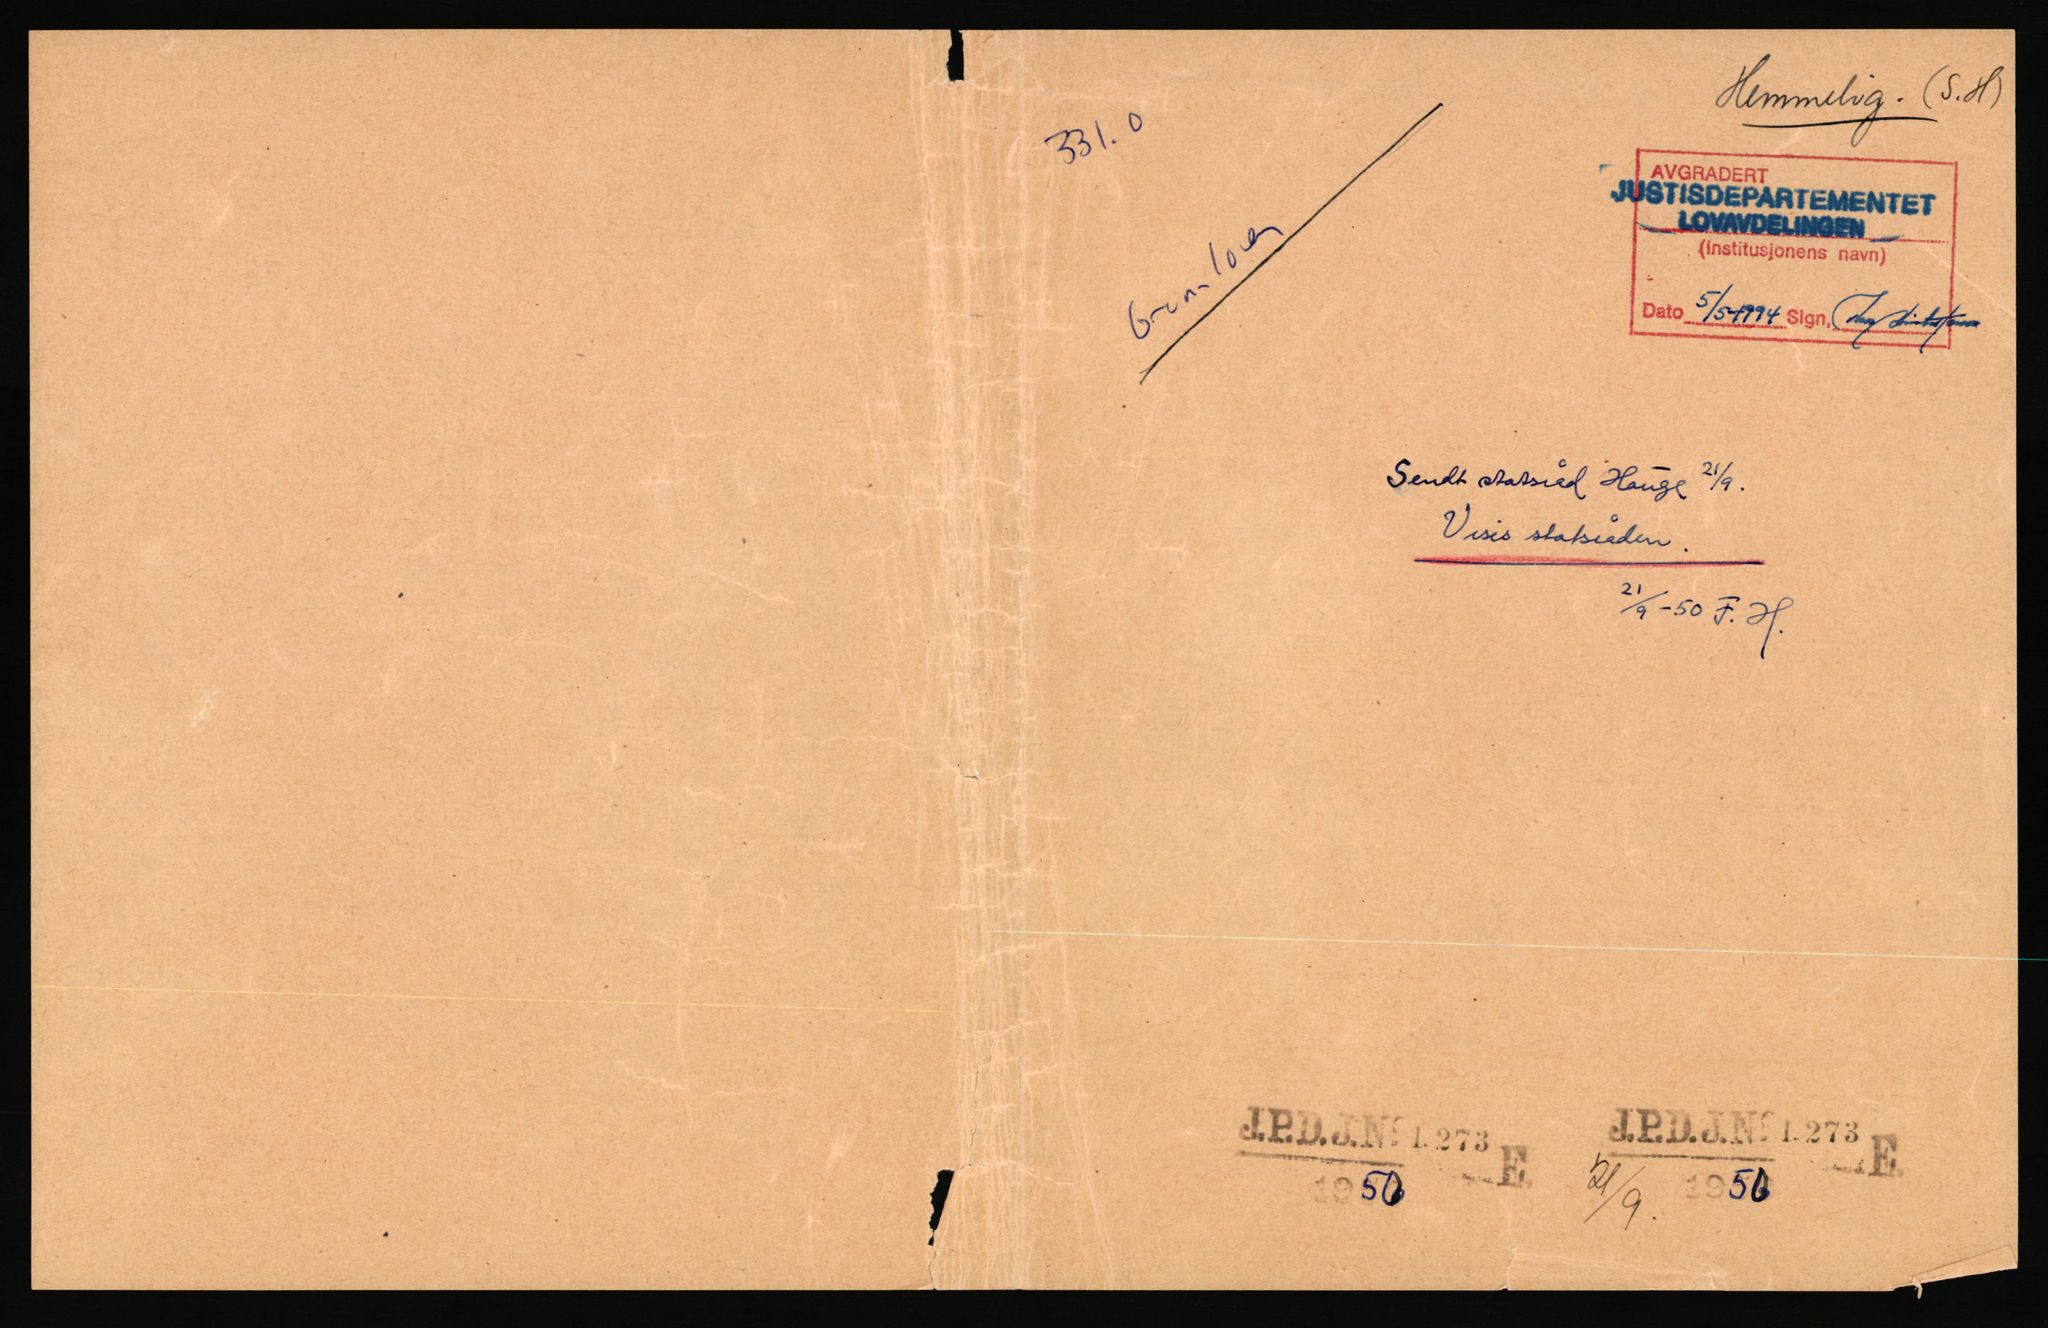 Hemmelig. (S.H)
331.0
Grunnloven
AVGRADERT
JUSTISDEPARTEMENTET
LOVAVDELINGEN
(institusjonens navn)
Dato 5/5-1994 Sign,
Sendt statsråd Hauge 21/9.
Visis statsråden.
21/9-50 F.H.
J.P.D.J.Nº 1.273 E.
1950
J.P.D.J.Nº 1.273 E.
21/9. 1950